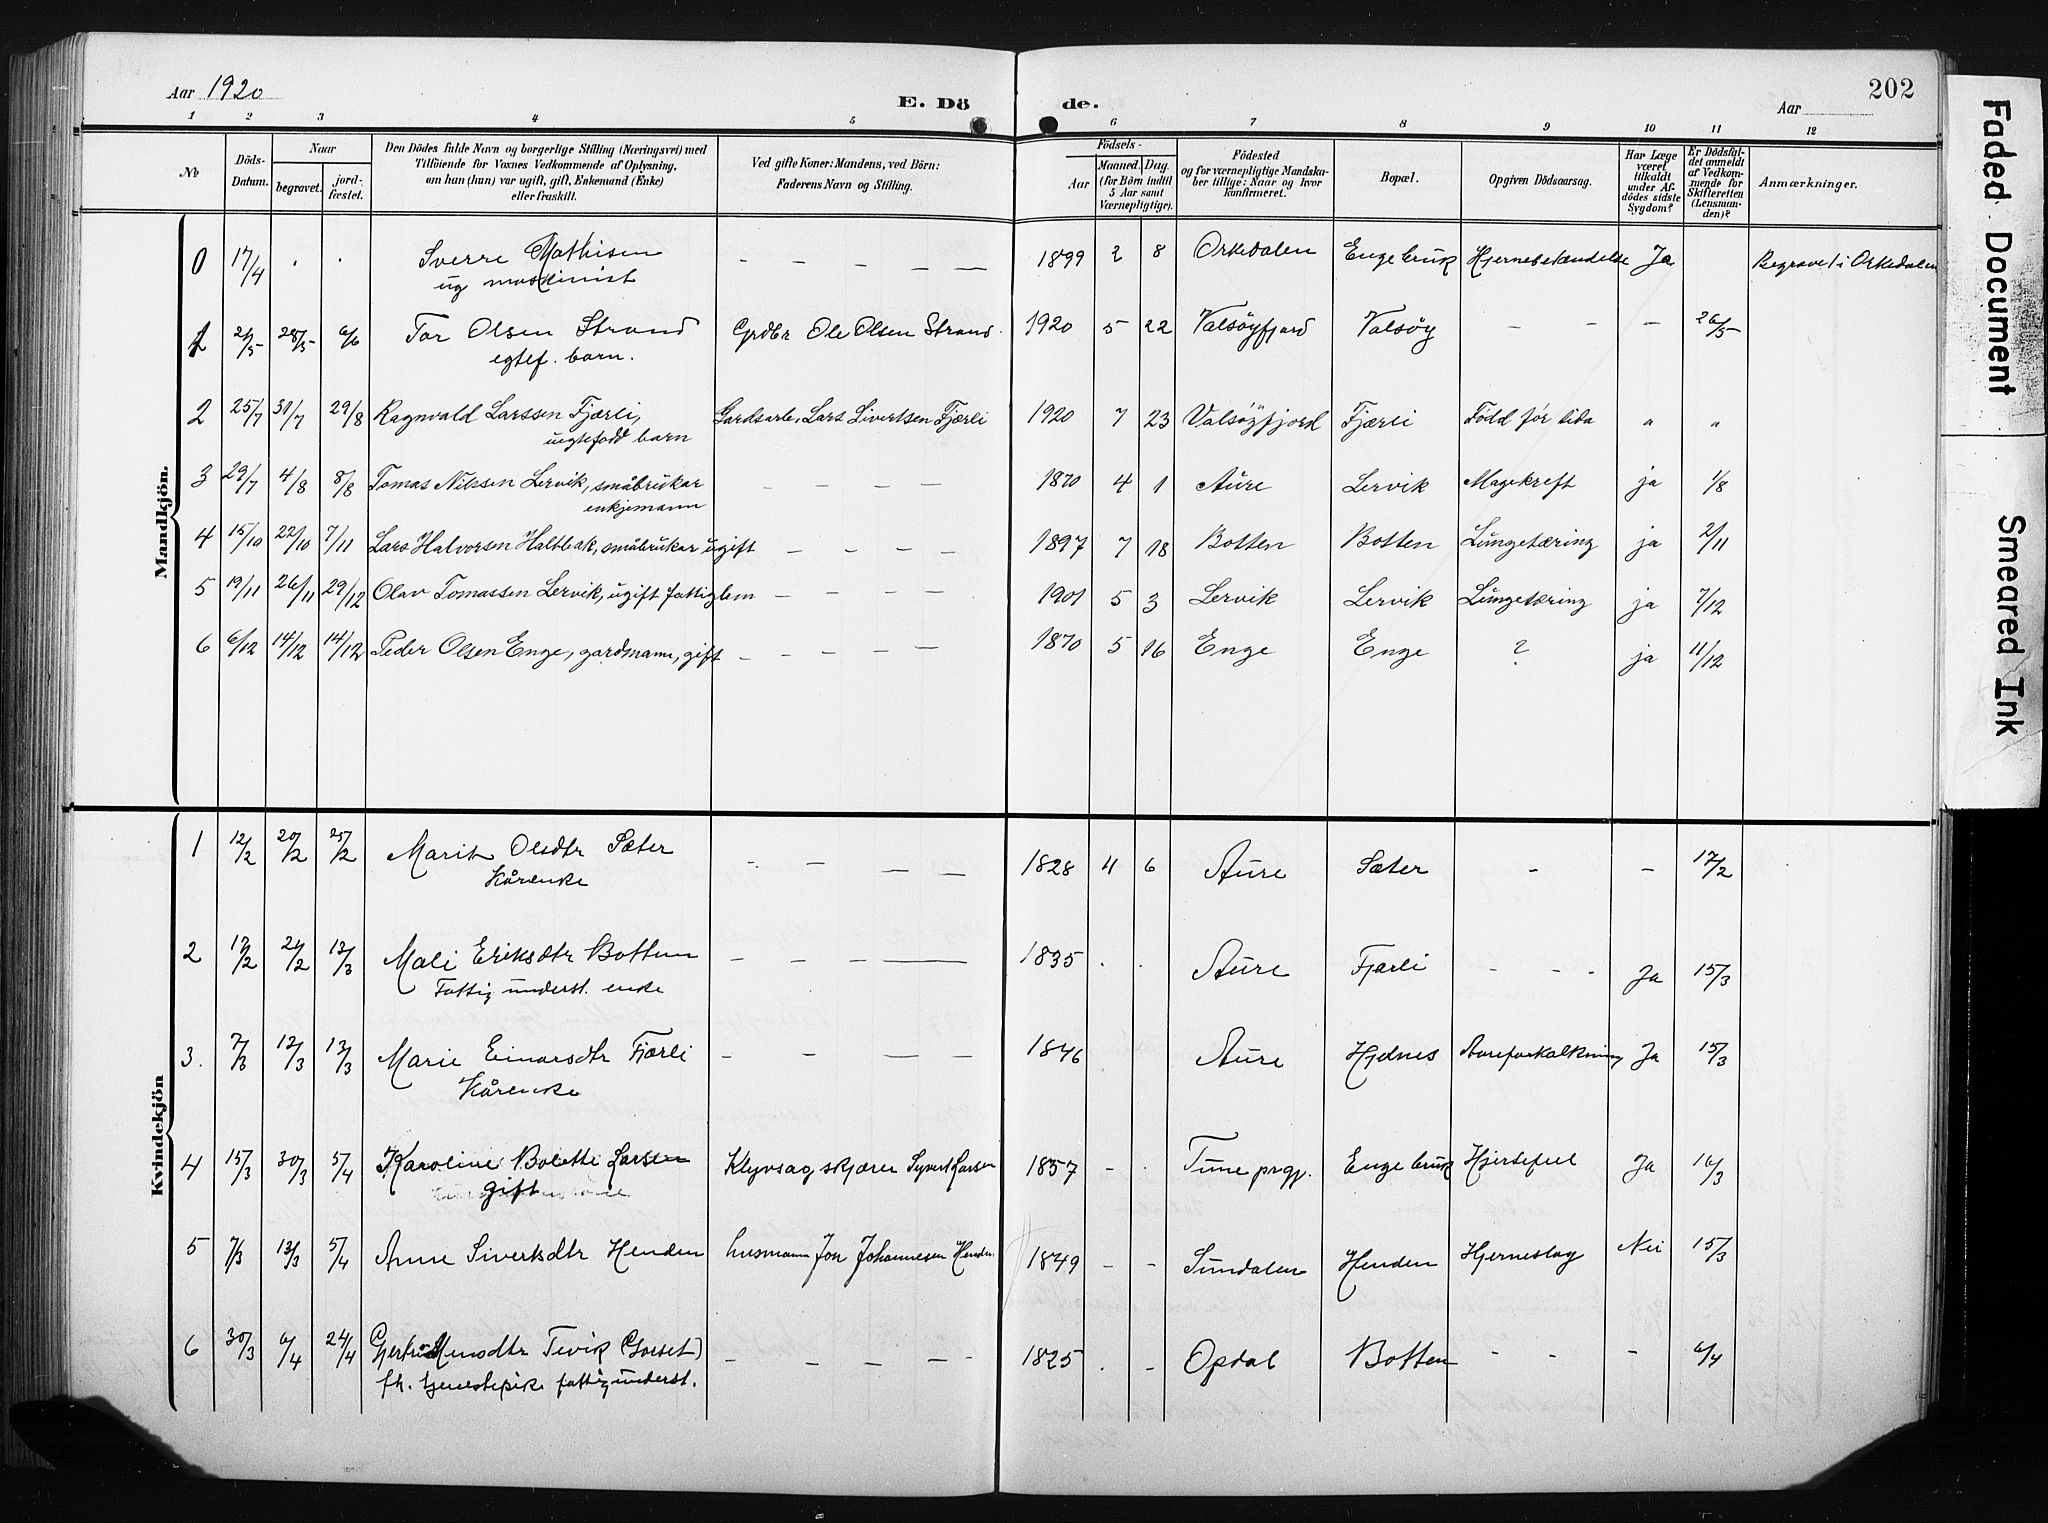 Aar 1920
E. Dö de.
Aar
202
1 2 3 4 5 6 7 8 9 10 11 12
№
Döds-Datum.
Naar
begravet.
jord-fæstet.
Den Dödes fulde Navn og borgerlige Stilling (Næringsvei) med
Tilföiende for Voxnes Vedkommende af Oplysning,
om han (hun) var ugift, gift, Enkemand (Enke)
eller fraskilt.
Ved gifte Koner: Mandens, ved Börn:
Faderens Navn og Stilling.
Födsels-
Aar
Maaned. Dag.
(for Börn indtil
5 Aar samt
Værnepligtige).
Födested
og for værnepligtige Mandska-
ber tillige: Naar og hvor
konfirmeret.
Bopæl.
Opgiven Dödsaarsag.
Har Læge
været
tilkaldt
under Af-
dödes sidste
Sygdom?
Er Dödsfal-
det anmeldt
af Vedkom-
mende for
Skifteretten
(Lensman-
den)?
Anmærkninger.
Mandkjön.
0 17/4 . . Sverre Mathisen — — — — — 1899 2 8 Orkedalen Engebruk Hjernebetændelse Ja Begravet i Orkedalen
ug maskinist
1 24/5 28/5 6/6 Tor Olsen Strand Grdbr Ole Olsen Strand. 1920 5 22 Valsøyfjord Valsøy — — — 26/5
egtef. barn.
2 25/7 31/7 29/8 Ragnvald Larssen Fjærli, Gardsarb. Lars Sivertsen Fjærli 1920 7 23 Valsøyfjord Fjærli Fødd før tida " "
uegtefødd barn
3 29/7 4/8 8/8 Tomas Nilssen Lervik, småbrukar — — — — 1870 4 1 Aure Lervik Magekreft ja 1/8
enkjemann
4 15/10 22/10 7/11 Lars Halvorsen Haltbak, småbrukar ugift — — — — 1897 7 18 Botten Botten Lungetæring ja 2/11
5 19/11 26/11 29/12 Olav Tomassen Lervik, ugift fattiglem — — — — — 1901 5 3 Lervik Lervik Lungetæring ja 7/12
6 6/12 14/12 14/12 Peder Olsen Enge, gardmann, gift — — — — — 1870 5 16 Enge Enge ? ja 11/12
Kvindekjön
1 12/2 20/2 25/2 Marit Olsdtr Sæter — — — — 1828 4 6 Aure Sæter - — 17/2
Kårenke
2 17/2 24/2 13/3 Mali Eriksdtr Botten — — — — 1835 . . Aure Fjærli - - - Ja 15/3
Fattig underst. enke
3. 7/3 12/3 13/3 Marie Einarsdtr Fjærli — — — — — 1846 Aure Hjelnes Aareforkalkning Ja 15/3
Kårenke
4 15/3 30/3 5/4 Karoline Bolette Larsen Klyvsagskjærer Syvert Larsen 1857 - . Tune prgj. Engebruk Hjertefeil Ja 16/3
gift
5 7/3 13/3 5/4 Anne Sivertsdtr Henden husmann Jon Johannesen Henden 1849 - - Sundalen Henden Hjerneslag Nei 15/3
6 30/3 6/4 24/4 Gjertrud Monsdtr Tevik (Gorset) — — — — — 1825 . - Opdal Botten - - — 6/4
fh. tjenestepike fattig underst.
Faded Document
Smeared Ink